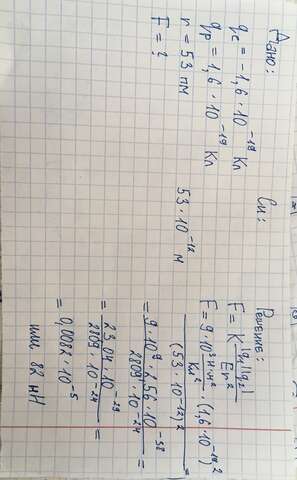 Дано:
qe = -1,6 · 10^-19 Кл
qp = 1,6 · 10^-19 Кл
r = 53 пм
F = ?
Си:
53 · 10^-12 м
Решение:
F = K |q1||q2| / Er^2
F = 9 · 10^9 Н·м^2 / Кл^2 · (1,6 · 10^-19)^2 / (53 · 10^-12)^2 =
= 9 · 10^9 · 2,56 · 10^-38 / 2809 · 10^-24 =
= 23,04 · 10^-29 / 2809 · 10^-24 =
= 0,0082 · 10^-5
или 82 нН